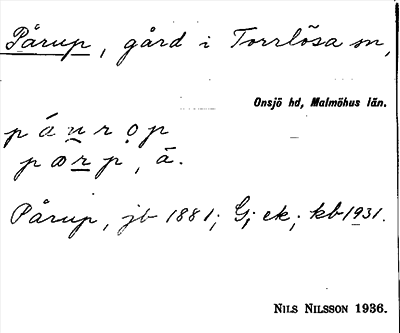 Pårup, gård i Torrlösa sn,
Onsjö hd, Malmöhus län.
på
pœrp, ā.
Pårup, jb 1881; G; ek; kb 1931.
NILS NILSSON 1936.